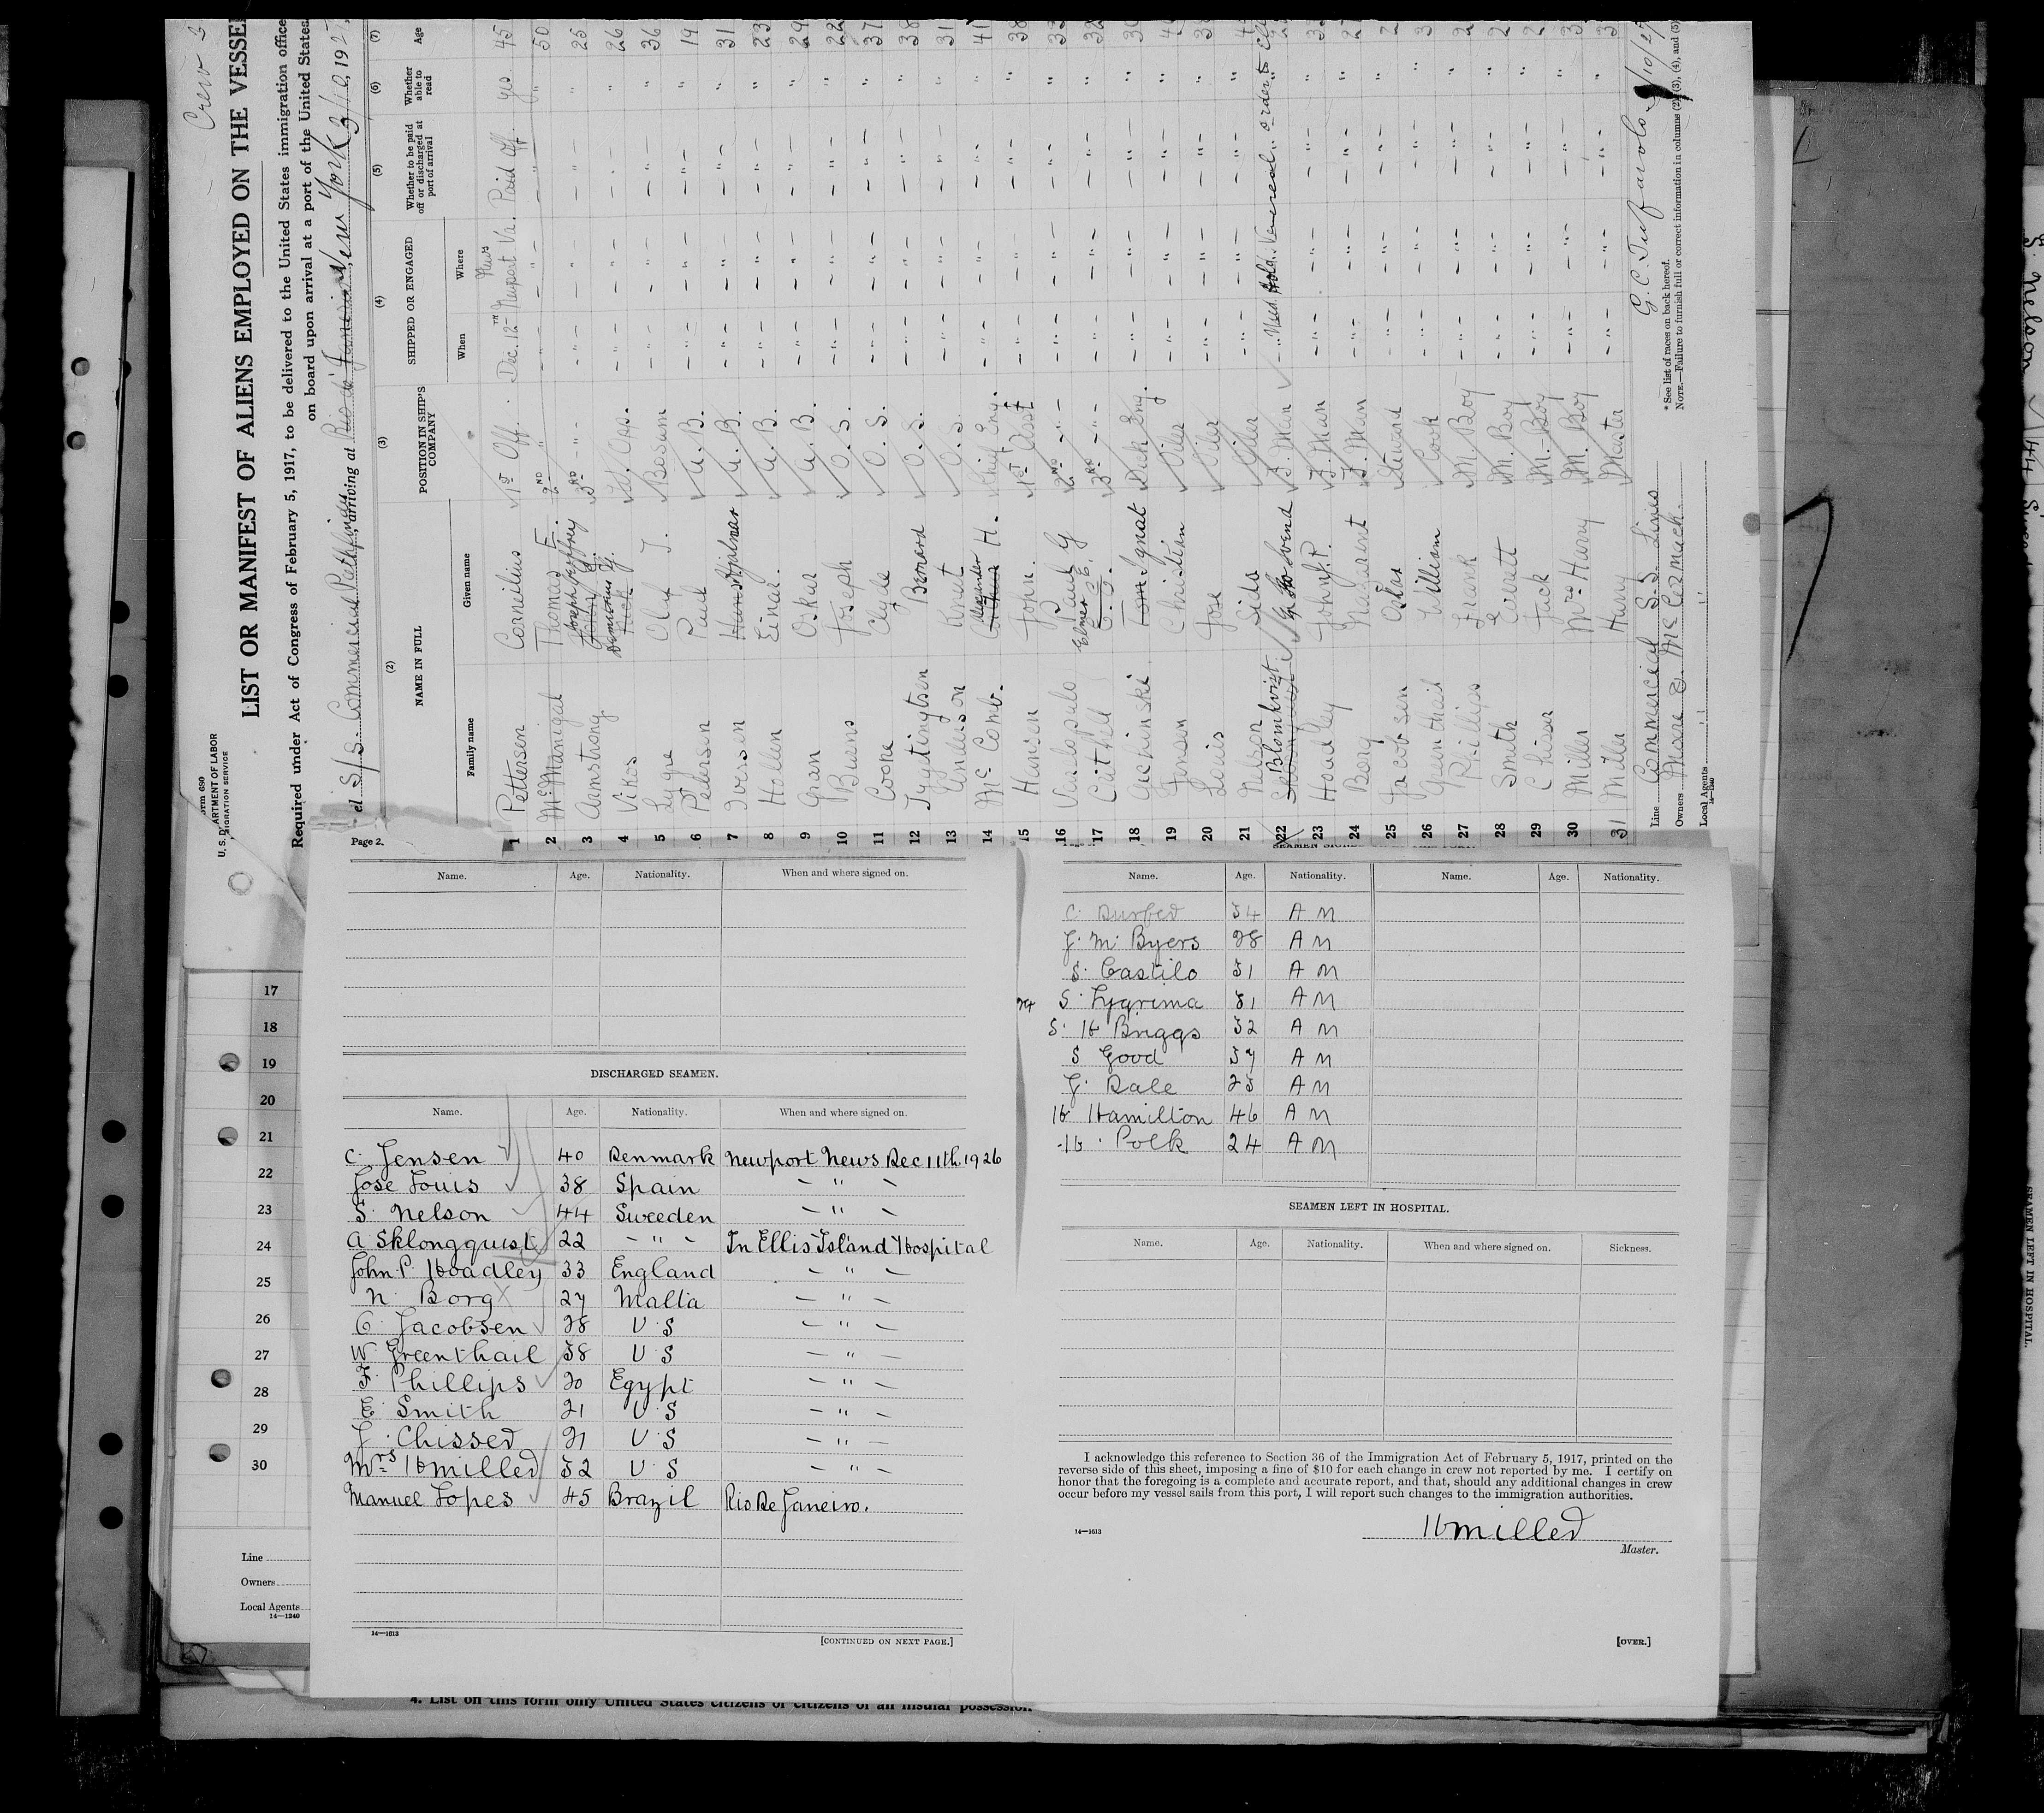 Crew
Form 680
U. S. DEPARTMENT OF LABOR
IMMIGRATION SERVICE
LIST OR MANIFEST OF ALIENS EMPLOYED ON THE VESSEL
Required under Act of Congress of February 5, 1917, to be delivered to the United States immigration office
on board upon arrival at a port of the United States
el S/S. Commercial Pathfinder, arriving at Rio de Janeiro New York 3/10, 192
(2) (3) (4) (5) (6) (7)
NAME IN FULL POSITION IN SHIP'S COMPANY SHIPPED OR ENGAGED Whether to be paid off or discharged at port of arrival Whether able to read Age
Family name Given name When Where
1 Pettersen Cornilius 1st Off. Dec. 12th Newport News Va. Paid Off. yes 45
2 McManigal Thomas F. 2nd " 50
3 Armstrong Joseph Jeffrey 3rd " 25
4 Vikos " 26
5 Lygre Olaf J. Bosun " 36
6 Pedersen Paul A. B. " 19
7 Iversen Hans Hjalmar A. B. " 31
8 Hollen Einar. A. B. " 23
9 Gran Oskar A. B. " 29
10 Burns Joseph O. S. " 22
11 Coone Clyde O. S. " 37
12 Tydtingtsen Bernard O. S. " 38
13 Anderson Knut O. S. " 31
14 McComb. Alexander Arthur H. Chief Eng. " 41
15 Hansen John. 1st Asst " 38
16 Paul G 2nd "
17 Cathell Elmer E. 3rd "
18 Gichinski Tom Ignat Deck Eng. "
19 Jensen Christian Oiler "
20 Louis Jose Oiler "
21 Nelson Sido Oiler "
22 Blomkvist Svend F. Man
23 Houdley John P. F. Man "
24 Borg F. Man "
25 Jacobsen Oskar Steward "
26 Greenthail William Cook "
27 Phillips Frank M. Boy "
28 Smith Everett M. Boy "
29 Chisser Jack M. Boy "
30 Miller Mrs Harry M. Boy "
31 Miller Harry Master "
Line Commercial S.S. Lines
Owners Moore & McCormack.
Local Agents
14—1240
* See list of races on back hereof.
NOTE.—Failure to furnish full or correct information in columns (2), (3), (4), and (5)
Page 2.
Name. Age. Nationality. When and where signed on.
DISCHARGED SEAMEN.
Name. Age. Nationality. When and where signed on.
C. Jensen 40 Denmark Newport News Dec 11th 1926
Jose Louis 38 Spain — " —
S. Nelson 44 Sweeden — " —
A Sklongquist 22 — " — In Ellis Island Hospital
John P. Hoadley 33 England — " —
N. Borg 27 Malta — " —
O. Jacobsen 28 U. S — " —
W Greenthail 38 U. S — " —
F. Phillips 20 Egypt — " —
E. Smith 21 U. S — " —
J. Chisser 21 U. S — " —
Mrs H Miller 32 U. S — " —
Manuel Lopes 45 Brazil Rio De Janeiro.
14—1613
[CONTINUED ON NEXT PAGE.]
Name. Age. Nationality. Name. Age. Nationality.
C. 34 A M
J. M. Byers 28 A M
S. Castilo 31 A M
S. Lygrima 31 A M
S. H Briggs 32 A M
S Good 37 A M
J. Dale 23 A M
H Hamilton 46 A M
H. Polk 24 A M
SEAMEN LEFT IN HOSPITAL.
Name. Age. Nationality. When and where signed on. Sickness.
I acknowledge this reference to Section 36 of the Immigration Act of February 5, 1917, printed on the
reverse side of this sheet, imposing a fine of $10 for each change in crew not reported by me. I certify on
honor that the foregoing is a complete and accurate report, and that, should any additional changes in crew
occur before my vessel sails from this port, I will report such changes to the immigration authorities.
14—1613
H Miller
Master.
[OVER.]
17
18
19
20
21
22
23
24
25
26
27
28
29
30
Line
Owners
Local Agents
14—1240
4. List on this form only United States citizens or citizens of an insular possession
S. Nelson 44
SEAMEN LEFT IN HOSPITAL.